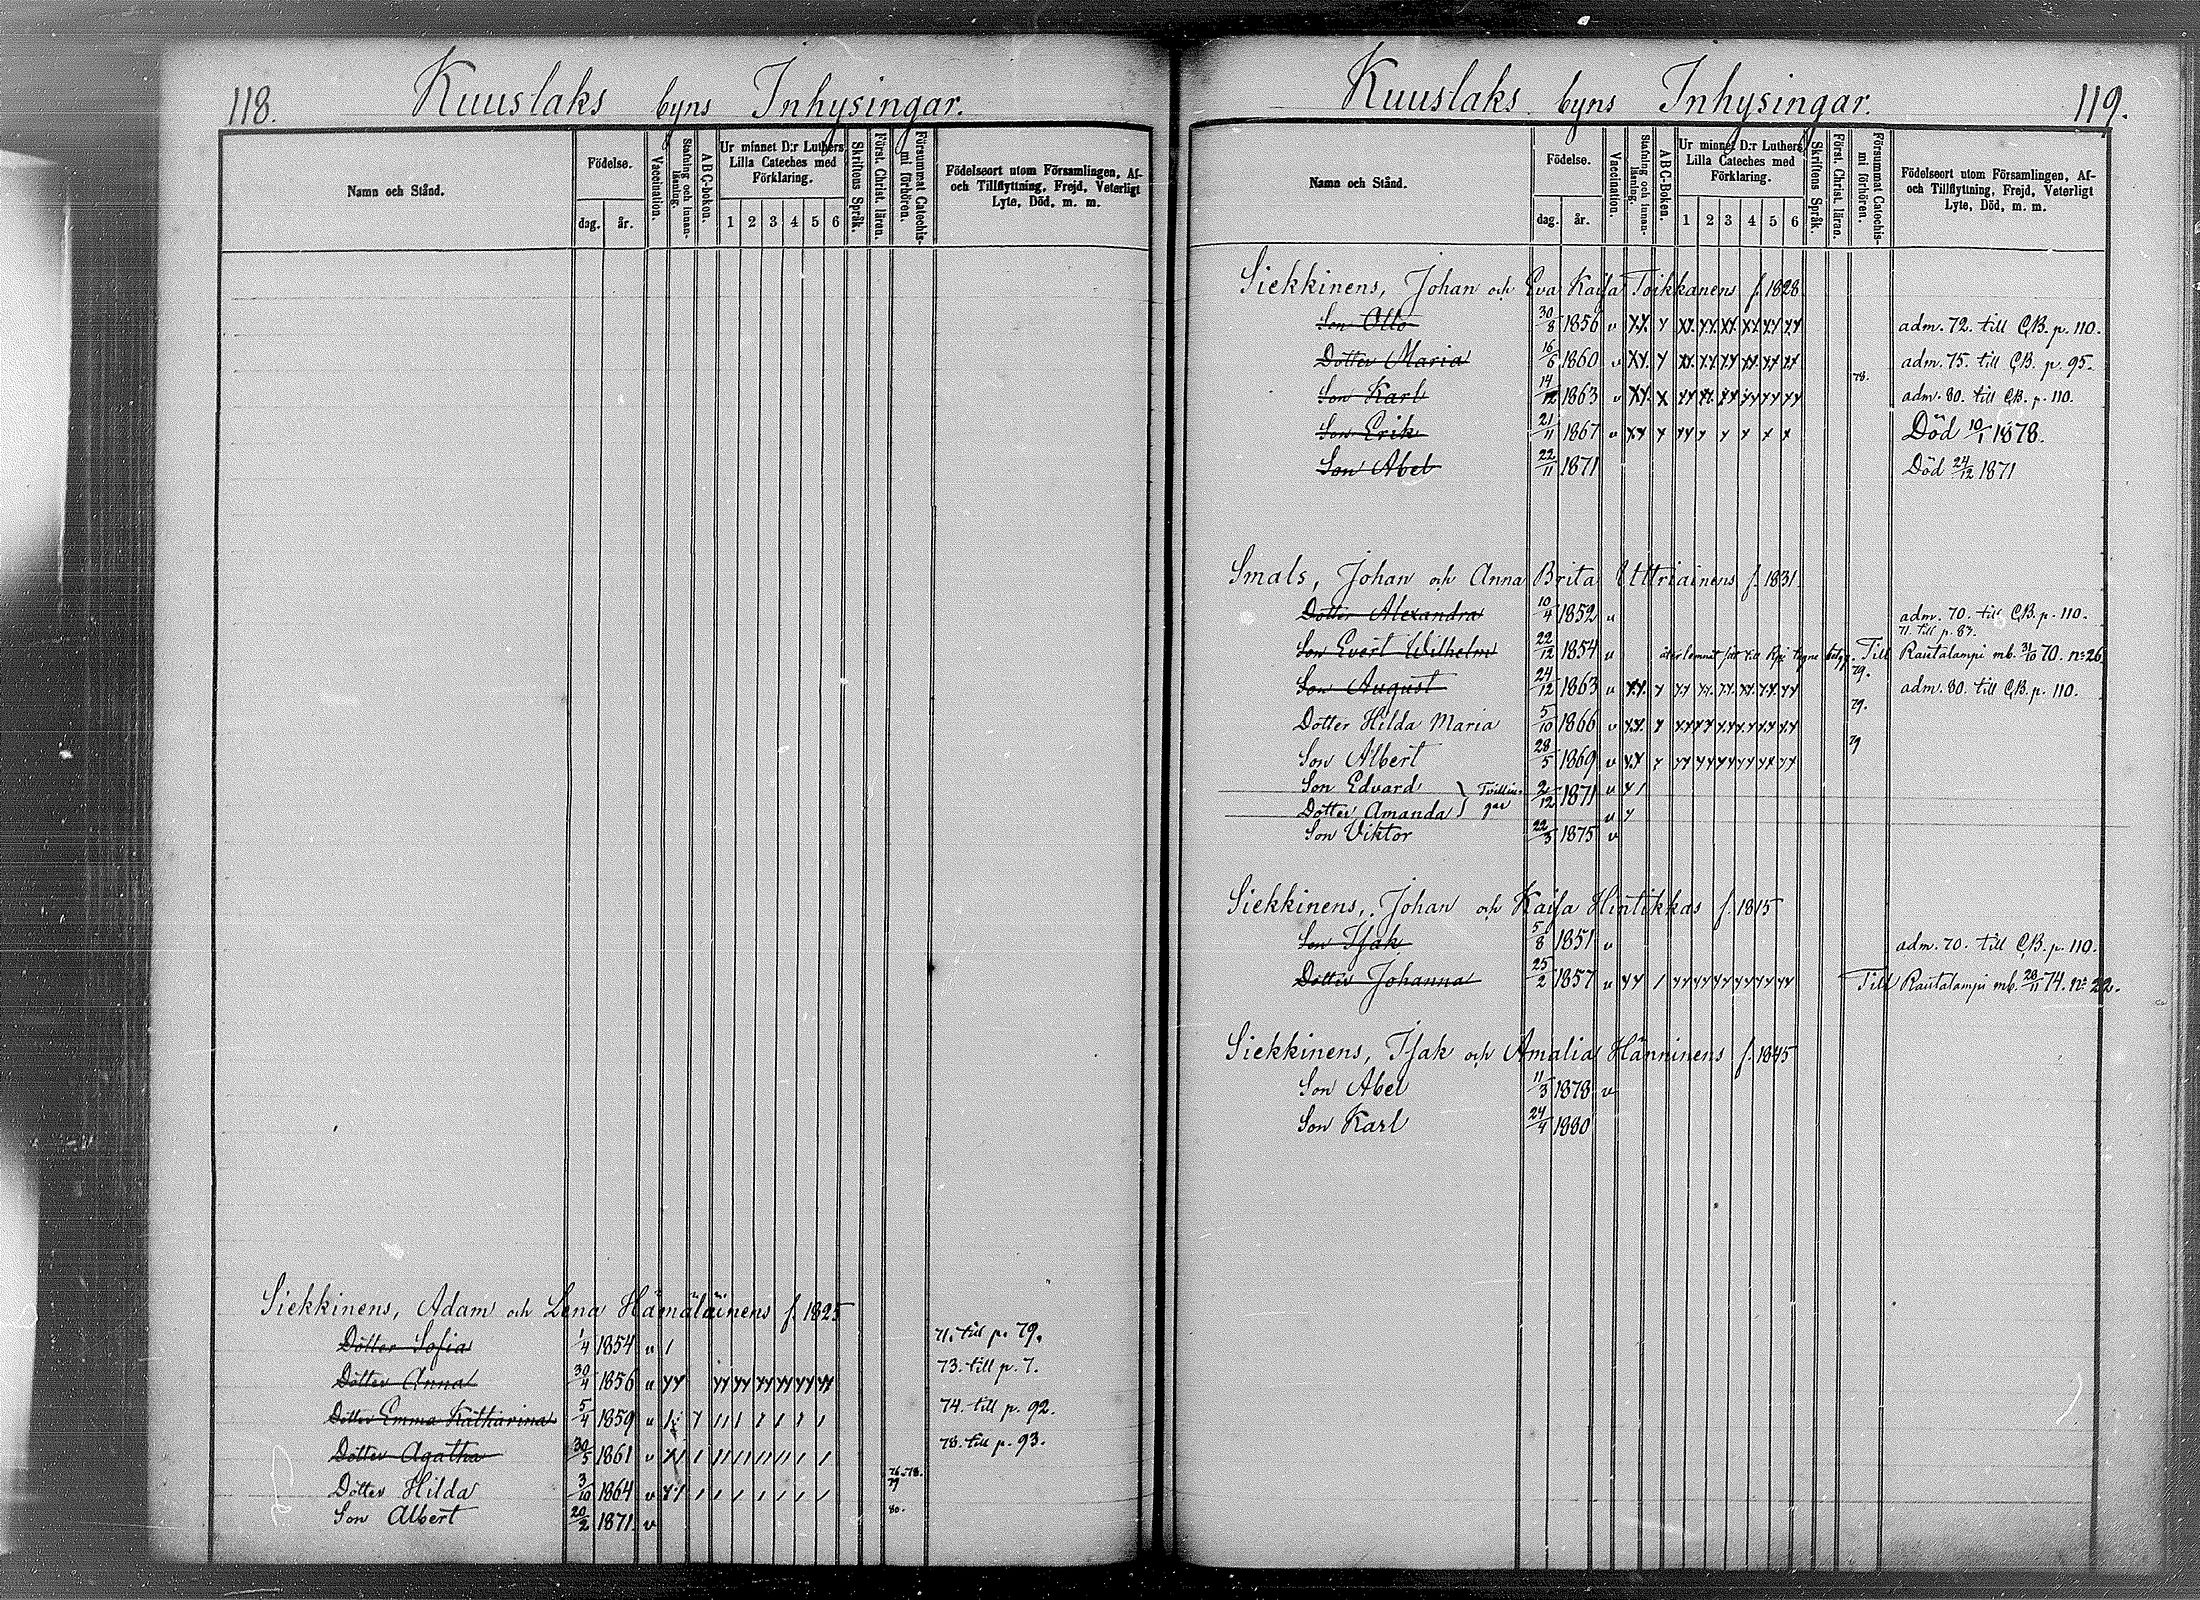 118. Kuuslaks byns Inhysingar.
Namn och Stånd.
Födelse.
dag. år.
Vaccination.
Stafning och Innan-läsning.
ABC-boken.
Ur minnet D:r Luthers Lilla Cateches med Förklaring.
1 2 3 4 5 6
Skriftens Språk.
Först. Christ. läran.
Försummat Catechis-mi förhören.
Födelseort utom Församlingen, Af- och Tillflyttning, Frejd, Veterligt Lyte, Död, m. m.
Siekkinens, Adam och Lena Hämäläinens f. 1825
Dotter Sofia 1/4 1854 v / 71. till p. 79.
Dotter Anna 30/4 1856 v 73. till p. 7.
Dotter Emma Katharina 5/4 1859 v 74. till p. 92.
Dotter Agatha 30/5 1861 v 78. till p. 93.
Dotter Hilda 3/10 1864 v 76-78. 79
Son Albert 20/2 1871 v 80.
Kuuslaks byns Inhysingar. 119.
Namn och Stånd.
Födelse.
dag. år.
Vaccination.
Stafning och Innan-läsning.
ABC-Boken.
Ur minnet D:r Luthers Lilla Cateches med Förklaring.
1 2 3 4 5 6
Skriftens Språk.
Först. Christ. läran.
Försummat Catechis-mi förhören.
Födelseort utom Församlingen, Af- och Tillflyttning, Frejd, Veterligt Lyte, Död, m. m.
Siekkinens, Johan och Eva Kaisa Toikkanens f. 1828
Son Otto 30/8 1856 v adm. 72. till C.B. p. 110.
Dotter Maria 16/6 1860 v adm. 75. till C.B. p. 95.
Son Karl 14/12 1863 v 78. adm. 80. till C.B. p. 110.
Son Erik 21/11 1867 v Död 10/1 1878.
Son Abel 22/11 1871 Död 24/12 1871
Smals, Johan och Anna Brita Uttriainens f. 1831
Dotter Alexandra 10/4 1852 v adm. 70. till C.B. p. 110.
71. till p. 87.
Son Evert Wilhelm 22/12 1854 v Till Rautalampi mb. 31/10 70. n:o 26.
Son August 24/12 1863 v 79. adm. 80. till C.B. p. 110.
Dotter Hilda Maria 5/10 1866 v 79.
Son Albert 28/5 1869 v 79
Son Edvard } Tvillin- 2/12 1871 v
Dotter Amanda } gar v
Son Viktor 22/3 1875 v
Siekkinens, Johan och Kaisa Hintikkas f. 1815
Son Isak 5/8 1851 v adm. 70. till C.B. p. 110.
Dotter Johanna 25/2 1857 v Till Rautalampi mb. 28/11 74. n:o 22.
Siekkinens, Isak och Amalia Hänninens f. 1845
Son Abel 11/3 1878 v
Son Karl 24/4 1880